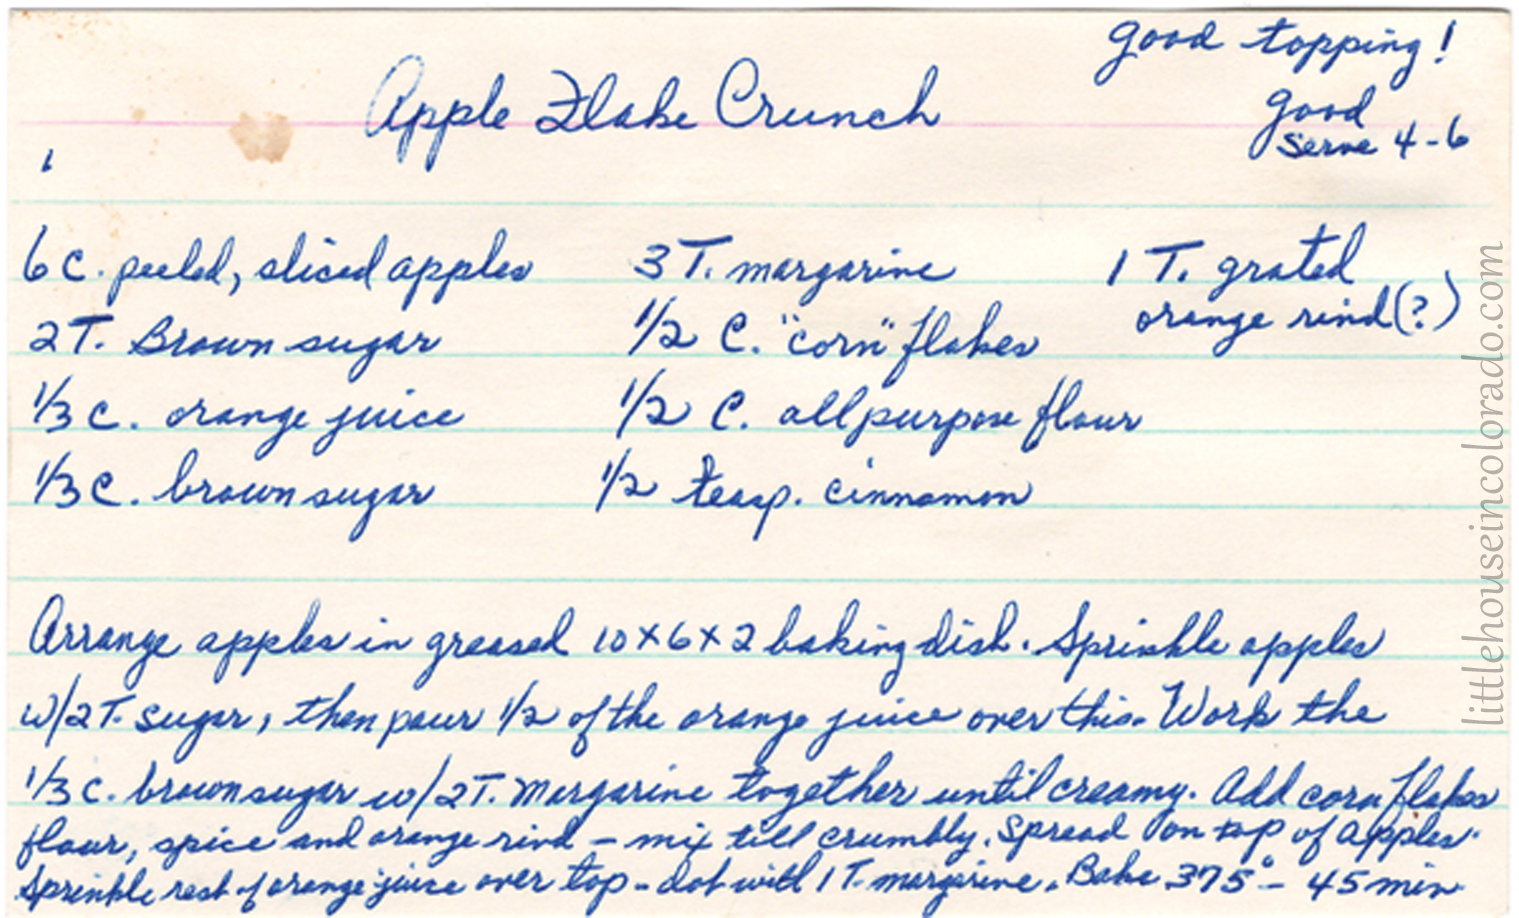 good topping!
Apple Flake Crunch
good
serve 4-6
1
6 c. peeled, sliced apples
3 T. margarine
1 T. grated
orange rind (?)
2 T. Brown sugar
1/2 C. "corn" flakes
1/3 c. orange juice
1/2 C. all purpose flour
1/3 c. brown sugar
1/2 teasp. cinnamon
Arrange apples in greased 10x6x2 baking dish. Sprinkle apples
w/2T. sugar, then pour 1/2 of the orange juice over this. Work the
1/3 c. brown sugar w/2T. Margarine together until creamy. Add corn flakes
flour, spice and orange rind - mix till crumbly. Spread on top of apples.
Sprinkle rest of orange juice over top - dot with 1 T. margarine. Bake 375° - 45 min
littlehouseincolorado.com